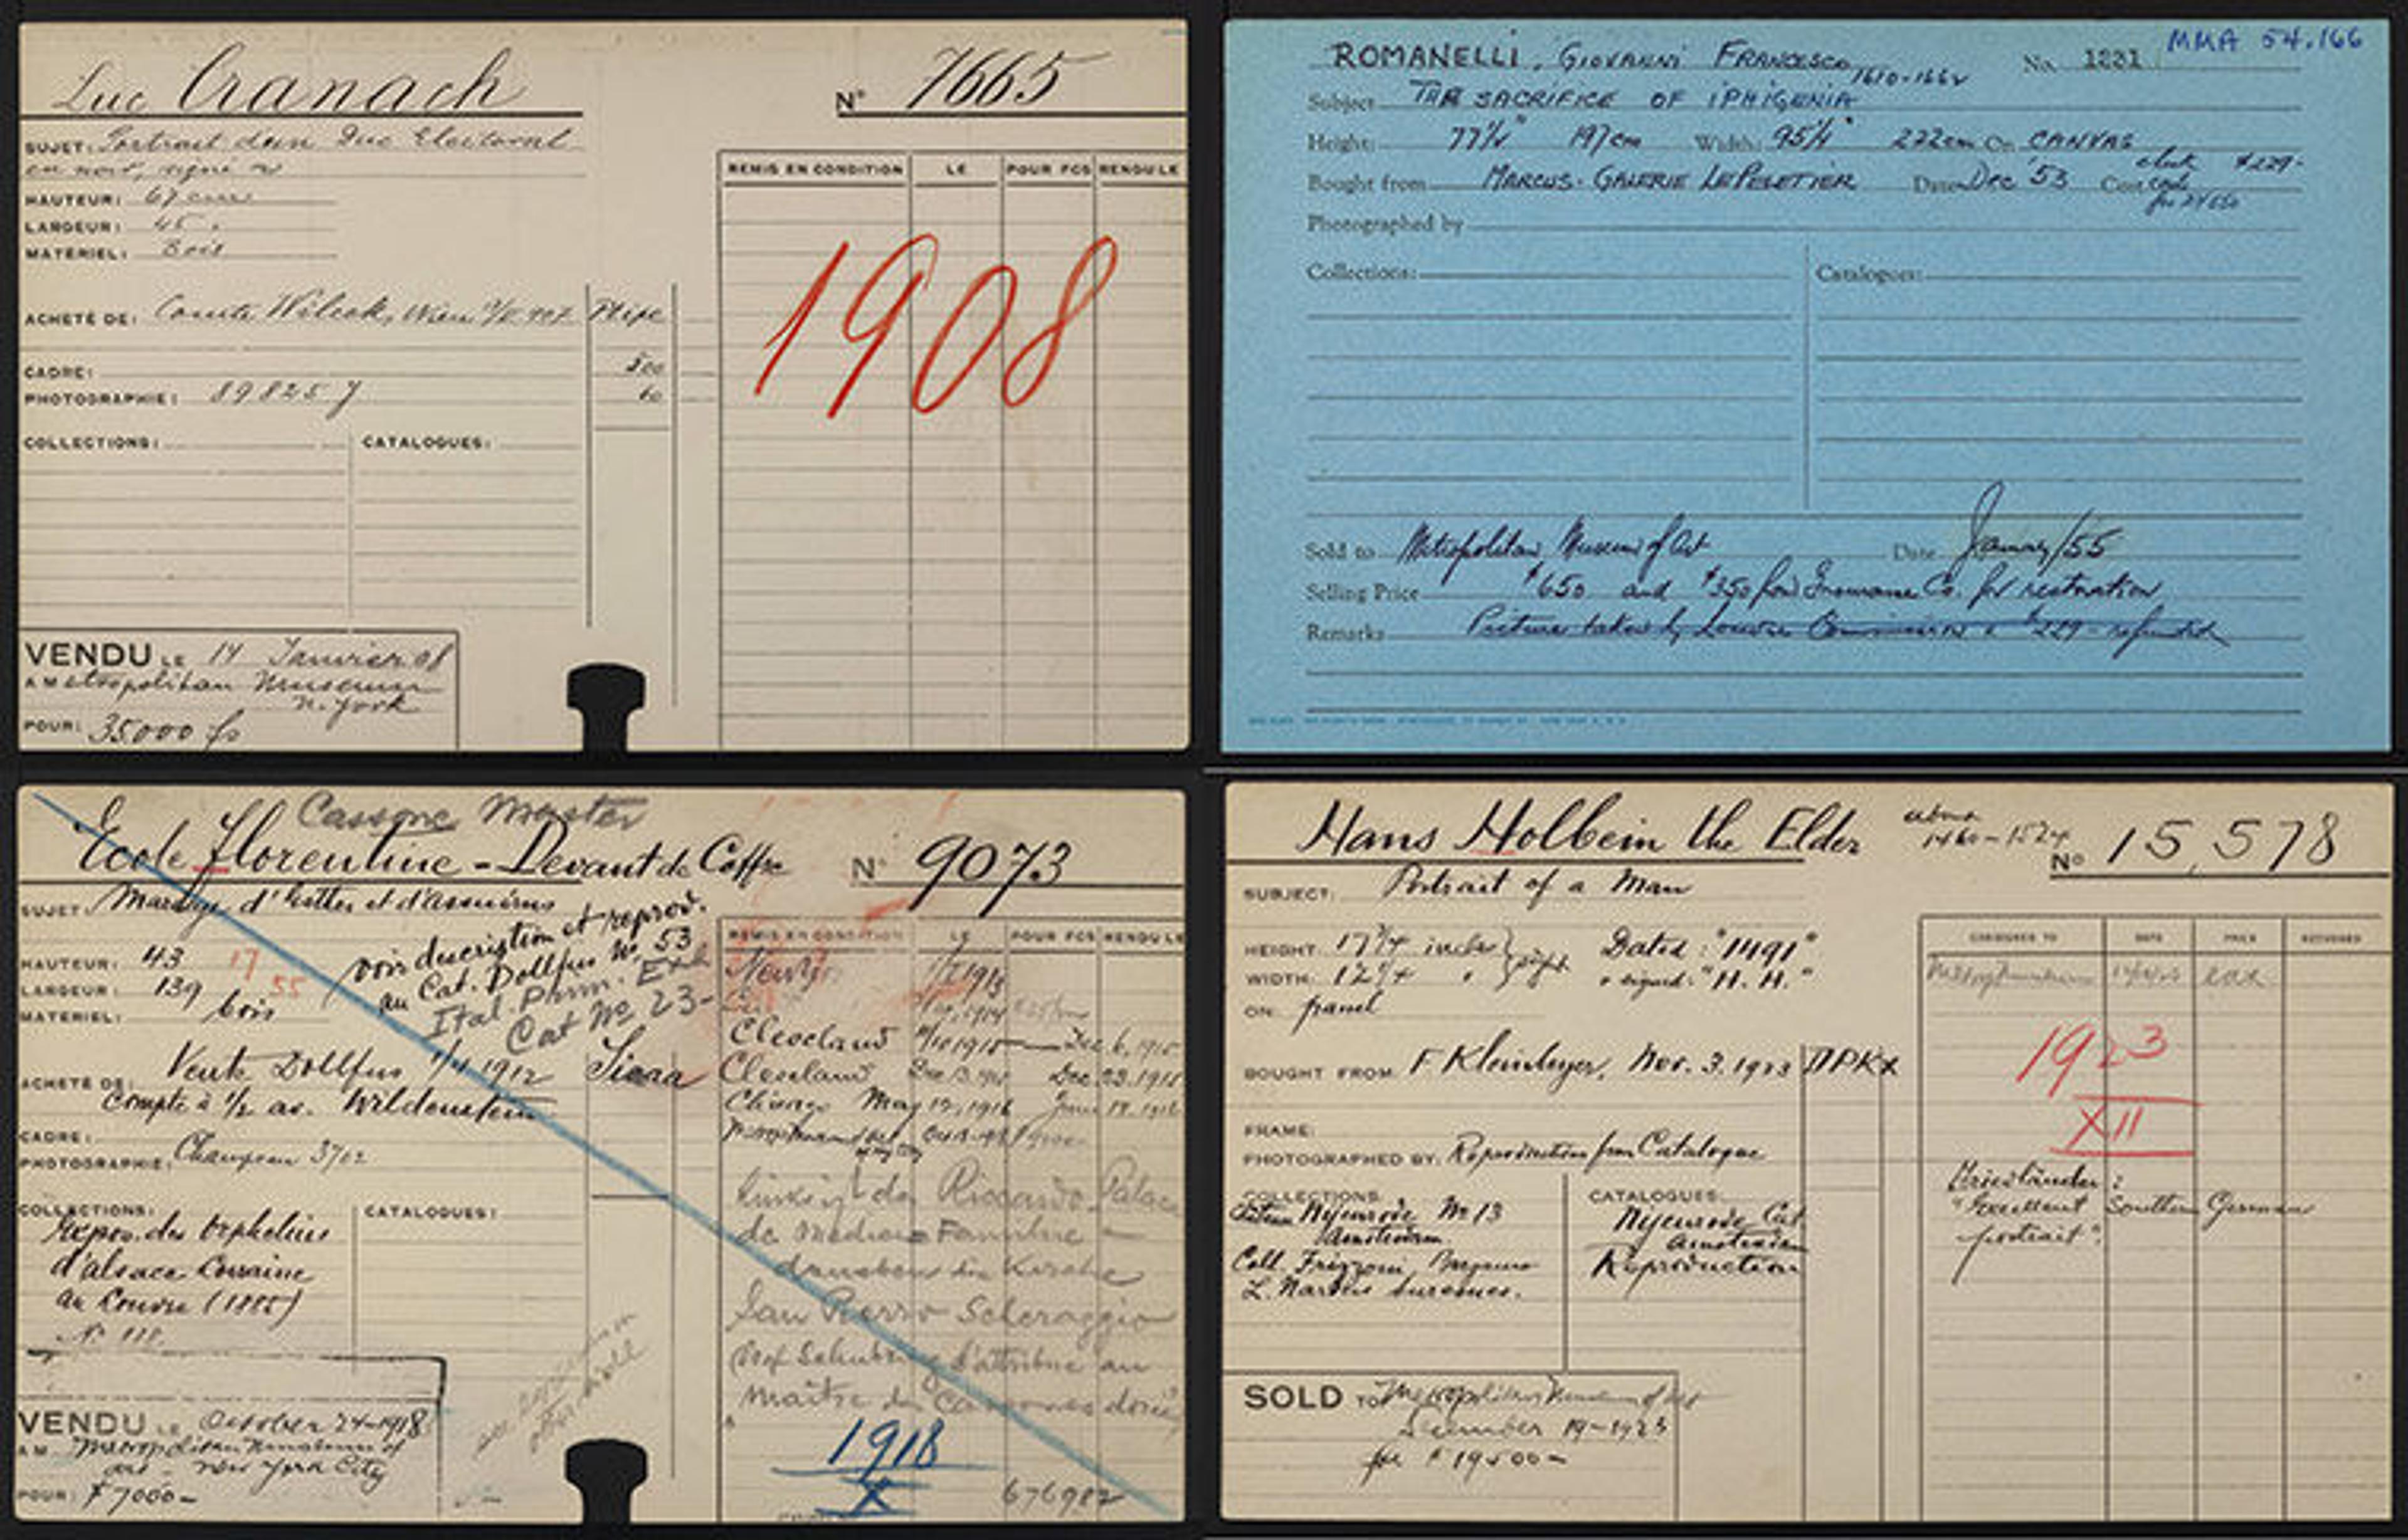 Luc Cranach
N° 7665
SUJET: Portrait d'un Duc Electoral
en noir, signé
HAUTEUR: 67 cm
LARGEUR: 45 "
MATÉRIEL: Bois
ACHETÉ DE: Comte Wilczek, Wien
CADRE: 500
PHOTOGRAPHIE: 89825 60
COLLECTIONS: CATALOGUES:
REMIS EN CONDITION LE POUR FCS RENDU LE
1908
VENDU LE 14 Janvier 08
A Metropolitan Museum
N. York
POUR: 35000 fs
MMA 54.166
ROMANELLI, GIOVANNI FRANCESCO 1610-1662 No. 1231
Subject THE SACRIFICE OF IPHIGENIA
Height: 77¼" 197cm Width: 95¼" 222cm On CANVAS
Bought from MARCUS-GALERIE LE PELETIER Date Dec '53 Cost $229-
Photographed by
Collections: Catalogues:
Sold to Metropolitan Museum of Art Date January/55
Selling Price $650 and $350 from Insurance Co. for restoration
Remarks Picture taken by Louvre $229- refunded
Cassone Master
Ecole florentine - Devant de Coffre N° 9073
SUJET: Mariage d'Esther et d'Assuérus
HAUTEUR: 43 17
LARGEUR: 139 55
MATÉRIEL: bois
voir description et reprod.
au Cat. Dollfus No 53
Ital. Prim. Exh
Cat No 23-
ACHETÉ DE: Vente Dollfus 1/4 1912
Compte à 1/2 av. Wildenstein
CADRE:
PHOTOGRAPHIE: Champeau 3702
COLLECTIONS: CATALOGUES:
Expos. des Orphelins
d'Alsace Lorraine
au Louvre (1885)
N°
REMIS EN CONDITION LE POUR FCS RENDU LE
1913
1914
Cleveland Dec 6, 1915
Cleveland Dec 23. 1915
Chicago May 12, 1916 June
links ist der Riccardo Palace
de Medicea Familie -
daneben die Kirche
San Pierro Scheraggio
Prof Schubring l'attribue au
maître des Cassones
1918
X
676982
VENDU LE October 24-1918
A M. Metropolitan Museum of
art - New York City
POUR: $ 7000-
Hans Holbein the Elder
1460-1524
N° 15,578
SUBJECT: Portrait of a Man
HEIGHT: 17¾ inches
WIDTH: 12¾ " sight
Dated: "1491"
" signed: "H. H."
ON: panel
BOUGHT FROM: F. Kleinberger, Nov. 3. 1923 DPKX
FRAME:
PHOTOGRAPHED BY: Reproduction from Catalogue
COLLECTIONS: CATALOGUES:
Nijenrode No 13
Amsterdam
Coll. Frizzoni, Bergamo
L. Nardus Suresnes.
Nijenrode Cat
Amsterdam
Reproduction
CONSIGNED TO DATE PRICE RETURNED
1923
XII
Friedländer:
"Excellent Southern German
portrait".
SOLD TO Metropolitan Museum of Art
December 19-1923
for $ 19500-